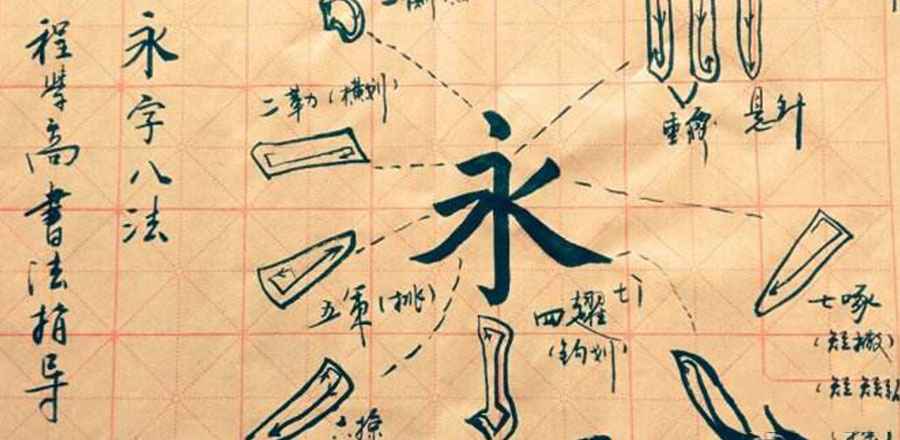 永字八法
程學高書法指导
二勒(横划)
垂露
悬针
永
五策(挑)
四趯
(钩划)
七啄
(短撇)
六掠